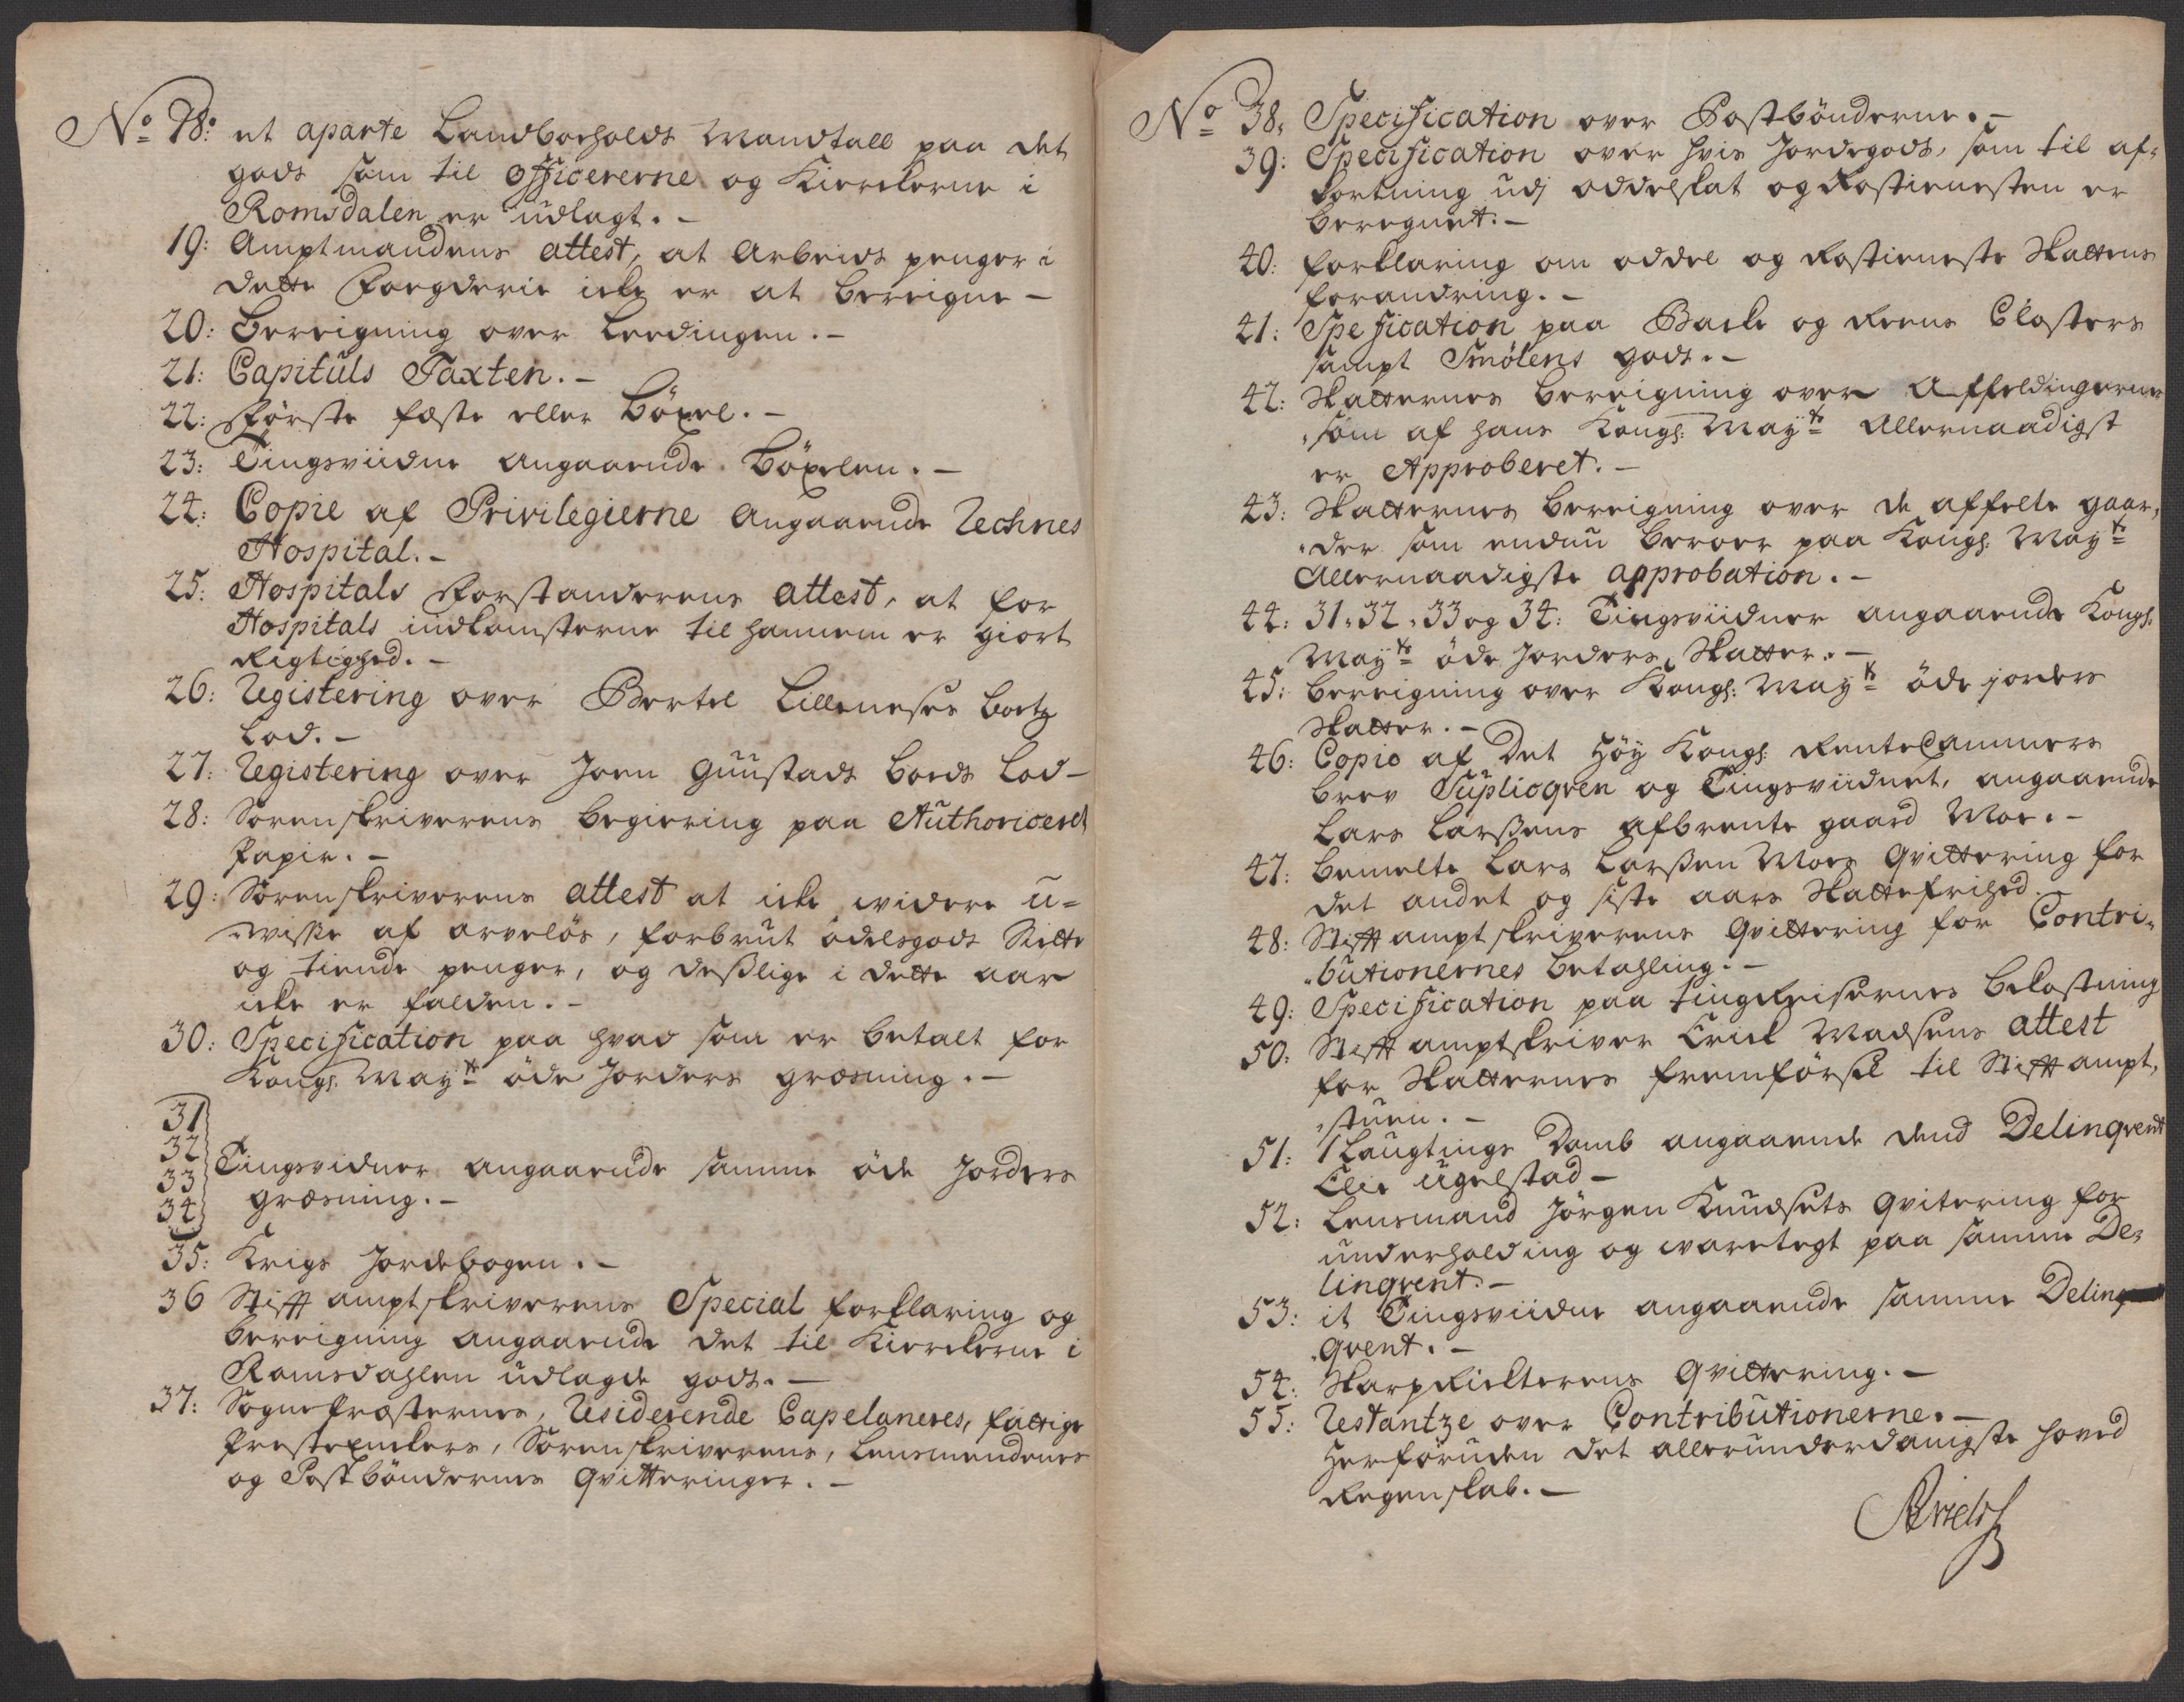 No 18: et aparte Landboholds Mandtall paa det
gods som til officererne og Kierckerne i
Romsdalen er udlagt. –
19: Amptmandens attest, at Arbeids penger i
dette Foegderie icke er at bereigne –
20: Bereigning over Leedingen. –
21: Capituls Taxten. –
22: Første feste eller Böxel. –
23: Tingsviidne angaaende Böxelen. –
24: Copie af Privilegierne angaaende Rechnes
Hospital. –
25: Hospitals Forstanderens attest, at for
Hospitals indkomsterne til hannem er giort
Rigtighed. –
26: Registering over Bertel Lillenesses
Lod. –
27: Registering over Joen Guustads Boeds Lod –
28: Sorenskriverens begiering paa Authoriceret
Papir. –
29: Sorenskriverens attest at icke widere u-
wisse af arvelös, forbrut odelsgods
og tiende penger, og desslige i dette aar
icke er falden. –
30: Specification paa hvad som er betalt for
Kongl. Mayts öde Jorders græsning. –
31
32
33 Tingsvidner angaaende samme öde Jorders
34 græsning. –
35: Krigs Jordebogen. –
36 Stifft amptskriverens Special forklaring og
bereigning angaaende det til Kierckerne i
Romsdahlen udlagde gods. –
37: Sognepræsternes, Residerende Capelaneres, fattige
Præsteenckers, Sorenskriverens, Lensmendenes
og Postböndernes qvitteringer. –
No 38: Specification over Postbönderne. –
39: Specification over hvis Jordegods, som til af-
kortning udj oddelskat og Rostienesten er
beregnet. –
40: forklaring om oddel og Rostieneste Skattens
forandring. –
41: Spesification paa Backe og Reens Closters
sampt Smölens gods. –
42: Skatternes bereigning over Affeldingerne
som af hans Kongl: Mayts Allernaadigst
er Approberet. –
43: Skatternes bereigning over de affelte gaar-
der som endnu beroer paa Kongl: Mayts
Allernaadigste approbation. –
44: 31, 32, 33 og 34: Tingsviidner angaaende Kongl.
Mayts öde Jorders Skatter. –
45: bereigning over Kongl: Mayts öde jorders
Skatter. –
46: Copie af Det Höy Kongl: RenteCammers
brev Supliqven og Tingsviidnet, angaaende
Lars Larssens afbrente gaard Moe. –
47: bemelte Lars Larssen Moes Qvittering for
det andet og siste aars Skattefrihed.
48: Stifft amptskriverens Qvittering for Contri-
butionernes betahling. –
49: Specification paa tingReisernes bekostning
50: Stifft amptskriver Erick Madsens attest
for Skatternes fremförsel til Stifft ampt-
stuen. –
51: 1 Laugtings Domb angaaende dend Delinqvent
Elie Ugelstad –
52: Lensmand Jörgen Knudsets qvitering for
underholding og waretegt paa samme De-
linqvent. –
53: it Tingsviidne angaaende samme Delin
qvent. –
54: SkarpRichterens Qvittering. –
55: Restantze over Contributionerne. –
Herforuden det allerunderdanigste hoved
Regenskab. –